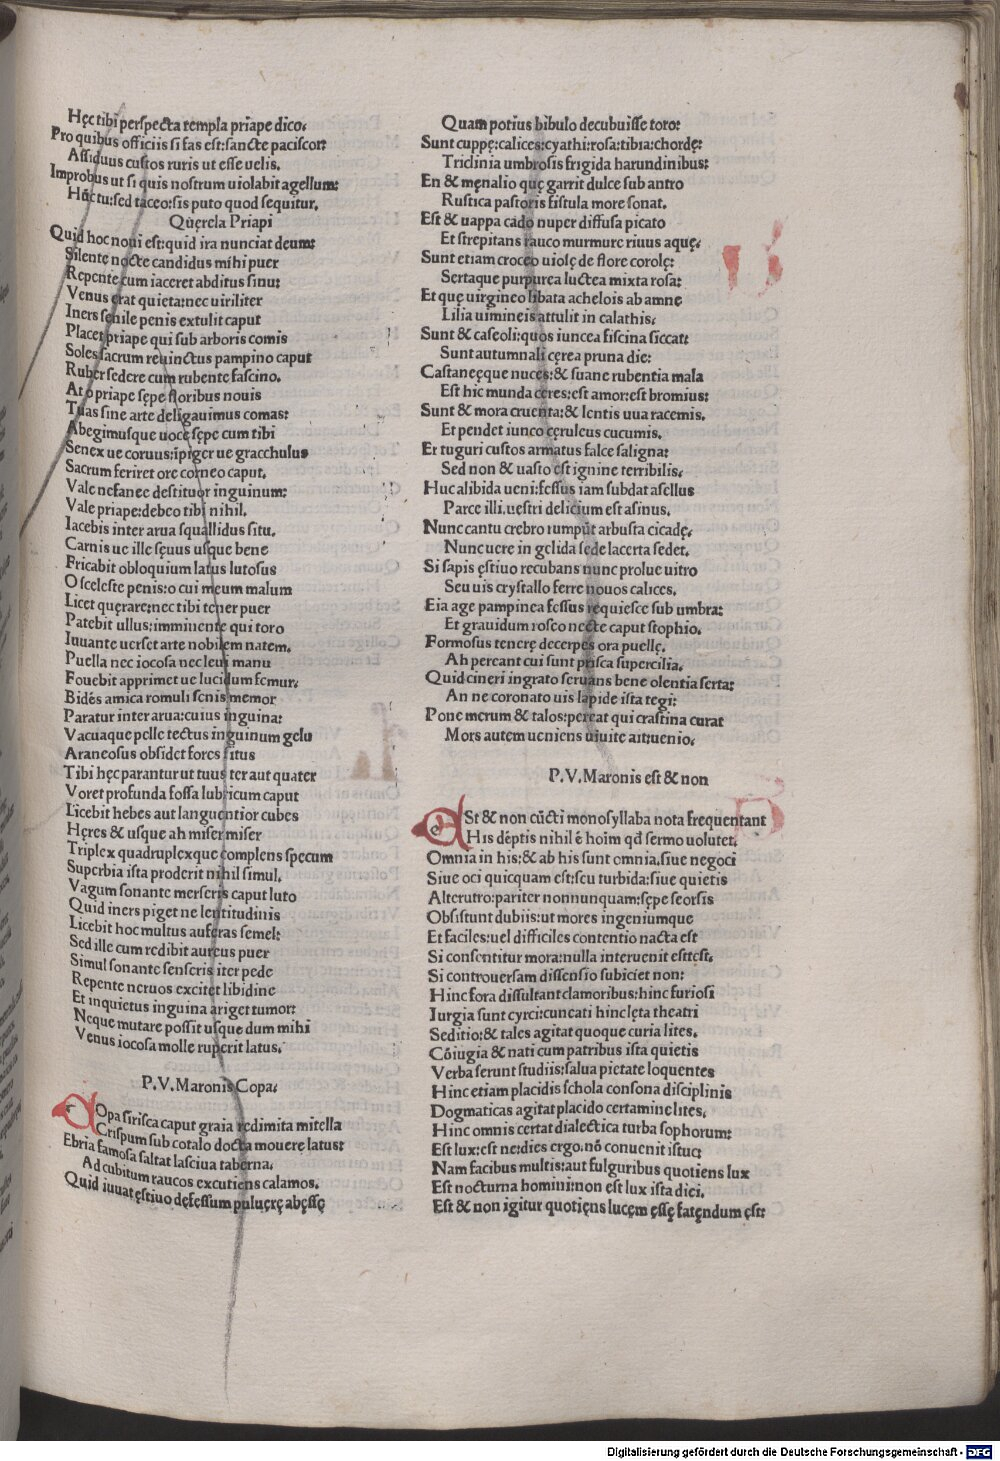 Hęc tibi perspecta templa priape dico.
Pro quibus officiis si fas est: sancte paciscor:
Assiduus custos ruris ut esse uelis.
Improbus ut si quis nostrum uiolabit agellum:
Hūc tu: sed taceo: sis puto quod sequitur.
Quęrela Priapi
Quid hoc noui est: quid ira nunciat deum:
Silente nocte candidus mihi puer
Repente cum iaceret abditus sinu:
Venus erat quieta: nec uiriliter
Iners senile penis extulit caput
Placet priape qui sub arboris comis
Soles sacrum reuinctus pampino caput
Ruber sedere cum rubente fascino.
At o priape sępe floribus nouis
Tuas sine arte deligauimus comas:
Abegimusque uoce sępe cum tibi
Senex ue coruus: ipiger ue gracchulus
Sacrum feriret ore corneo caput.
Vale nefanee destituor inguinum:
Vale priape: debeo tibi nihil.
Iacebis inter arua squallidus situ.
Carnis ue ille sęuus usque bene
Fricabit obloquium latus lutosus
O sceleste penis: o cui meum malum
Licet quęrare: nec tibi tener puer
Patebit ullus: imminente qui toro
Iuuante uerset arte nobilem natem.
Puella nec iocosa nec leui manu
Fouebit apprimet ue lucidum femur.
Bidēs amica romuli senis memor
Paratur inter arua: cuius inguina:
Vacuaque pelle tectus inguinum gelu
Araneosus obsidet fores situs
Tibi hęc parantur ut tuus ter aut quater
Voret profunda fossa lubricum caput
Licebit hebes aut languentior cubes
Hęres & usque ah miser miser
Triplex quadruplexque complens specum
Superbia ista proderit nihil simul.
Vagum sonante merseris caput luto
Quid iners piget ne lentitudinis
Licebit hoc multus auferas semel:
Sed ille cum redibit aureus puer
Simul sonante senseris iter pede
Repente neruos excitet libidine
Et inquietus inguina ariget tumor:
Neque mutare possit usque dum mihi
Venus iocosa molle ruperit latus.
P.V. Maronis Copa.
COpa sirisca caput graia redimita mitella
Crispum sub cotalo docta mouere latus:
Ebria famosa saltat lasciua taberna.
Ad cubitum raucos excutiens calamos.
Quid iuuat ęstiuo defessum puluere abesse
Quam potius bibulo decubuisse toro:
Sunt cuppę: calices: cyathi: rosa: tibia: chordę:
Triclinia umbrosis frigida harundinibus:
En & męnalio quę garrit dulce sub antro
Rustica pastoris fistula more sonat.
Est & uappa cado nuper diffusa picato
Et strepitans rauco murmure riuus aquę.
Sunt etiam croceo uiolę de flore corolę:
Sertaque purpurea luctea mixta rosa:
Et quę uirgineo libata achelois ab amne
Lilia uimineis attulit in calathis.
Sunt & caseoli: quos iuncea fiscina siccat:
Sunt autumnali cęrea pruna die:
Castaneęque nuces: & suaue rubentia mala
Est hic munda ceres: est amor: est bromius:
Sunt & mora cruenta: & lentis uua racemis.
Et pendet iunco cęruleus cucumis.
Et tuguri custos armatus falce saligna:
Sed non & uasto est ignine terribilis.
Huc alibida ueni: fessus iam subdat asellus
Parce illi. uestri delicium est asinus.
Nunc cantu crebro rumpūt arbusta cicadę.
Nunc uere in gelida sede lacerta sedet.
Si sapis ęstiuo recubans nunc prolue uitro
Seu uis crystallo ferre nouos calices.
Eia age pampinea fessus requiesce sub umbra:
Et grauidum rosco necte caput stophio.
Formosus tenerę decerpes ora puellę.
Ah pereant cui sunt prisca supercilia.
Quid cineri ingrato seruans bene olentia serta:
An ne coronato uis lapide ista tegi:
Pone merum & talos: pereat qui crastina curat
Mors autem ueniens uiuite ait: uenio.
P.V. Maronis est & non
ESt & non cūcti monosyllaba nota frequentant
His dēptis nihil ē hoīm qd̄ sermo uolutet.
Omnia in his: & ab his sunt omnia. siue negoci
Siue oci quicquam est: seu turbida: siue quietis
Alterutro: pariter nonnunquam: sępe seorsis
Obsistunt dubiis: ut mores ingeniumque
Et faciles: uel difficiles contentio nacta est
Si consentitur mora: nulla interuenit est: est.
Si controuersam dissensio subiciet non:
Hinc fora dissultant clamoribus: hinc furiosi
Iurgia sunt cyrci: cuneati hinc lęta theatri
Seditio: & tales agitat quoque curia lites.
Cōiugia & nati cum patribus ista quietis
Verba serunt studiis: salua pietate loquentes
Hinc etiam placidis schola consona disciplinis
Dogmaticas agitat placido certamine lites.
Hinc omnis certat dialectica turba sophorum:
Est lux: est ne: dies ergo. nō conuenit istuc:
Nam facibus multis: aut fulguribus quotiens lux
Est nocturna homini: non est lux ista diei.
Est & non igitur quotięns lucęm ęssę fatęndum ęst:
Digitalisierung gefördert durch die Deutsche Forschungsgemeinschaft - DFG